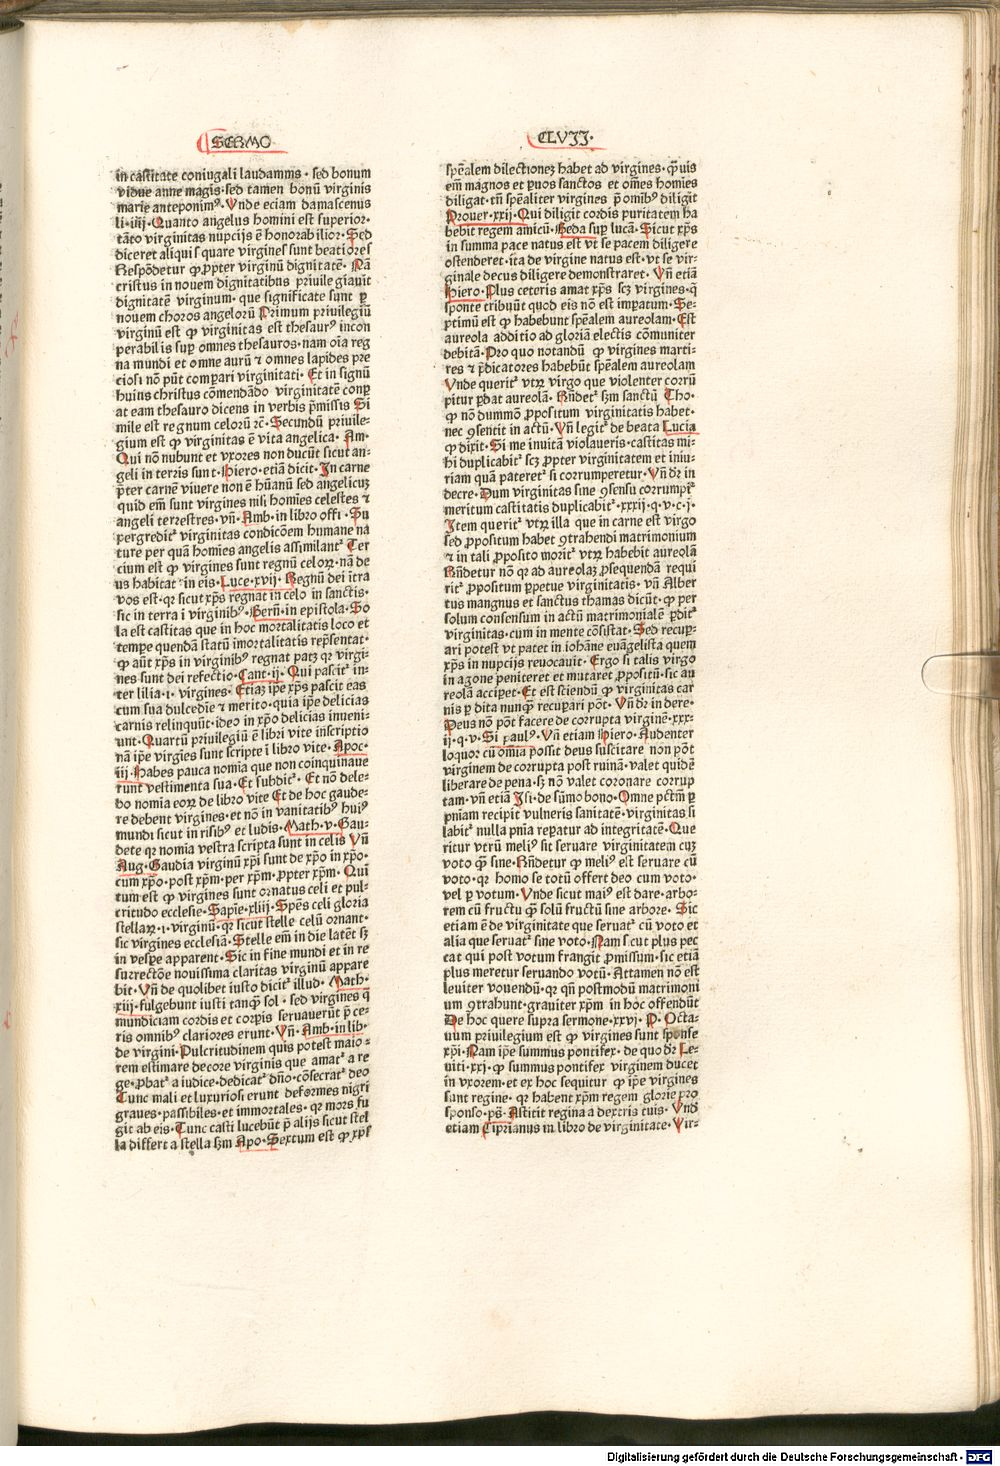 SERMO
CLVII·
in castitate coniugali laudamus · sed bonum
vidue anne magis·sed tamen bonū virginis
marie anteponimꝰ· Vnde eciam damascenus
li·iiij·Quanto angelus homini est superior·
tāto virginitas nupcijs ē honorabilior·Sed
diceret aliquis quare virgines sunt beatiores
Respōdetur ꝙ ꝓpter virginū dignitatē· Nā
cristus in nouem dignitatibus priuilegiauit
dignitatē virginum· que significate sunt ꝑ
nouem choros angelorū Primum priuilegiū
virginū est ꝙ virginitas est thesaurꝰ incon
perabilis suꝑ omnes thesauros·nam oīa reg
na mundi et omne aurū ⁊ omnes lapides pre
ciosi nō pn̄t comꝑari virginitati· Et in signū
huius christus cōmendādo virginitatē conꝑ
at eam thesauro dicens in verbis p̄missis Si
mile est regnum celorū ⁊c· Secundū priuile-
gium est ꝙ virginitas ē vita angelica· Am·
Qui nō nubunt et vxores non ducūt sicut an-
geli in terris sunt·Hiero·etiā dicit·In carne
p̄ter carnē viuere non ē hūanū sed angelicuz
quid em̄ sunt virgines nisi homīes celestes ⁊
angeli terrestres·vn̄·Amb·in libro offi·Su
pergreditᷣ virginitas condicōem humane na
ture per quā homīes angelis assimilantᷣ Ter
cium est ꝙ virgines sunt regnū celoꝝ·nā de
us habitat in eis·Luce·xvij·Regnū dei itra
vos est·qꝛ sicut xp̄s regnat in celo in sanctis·
sic in terra i virginibꝰ·Bern̄·in epistola·So
la est castitas que in hoc mortalitatis loco et
tempe quendā statū imortalitatis rep̄sentat·
ꝙ aūt xp̄s in virginibꝰ regnat patꝫ qꝛ virgi-
nes sunt dei refectio·Cant·ij· Qui pascitᷣ in-
ter lilia·i·virgines· Etiaꝫ ip̄e xp̄s pascit eas
cum sua dulcedīe ⁊ merito·quia ip̄e delicias
carnis relinquūt·ideo in xp̄o delicias inueni-
unt·Quartū priuilegiū ē libri vite īnscriptio
nā ip̄e virgīes sunt scripte ī libro vite·Apoc·
iij·Habes pauca nomīa que non coinquinaue
runt vestimenta sua·Et subditᷣ· Et nō dele-
bo nomīa eoꝝ de libro vite Et de hoc gaude-
re debent virgines·et nō in vanitatibꝰ huiꝰ
mundi sicut in risibꝰ et ludis·Math·v·Gau-
dete qꝛ nomīa vestra scripta sunt in celis Vn̄
Aug·Gaudia virginū xp̄i sunt de xp̄o in xp̄o·
cum xp̄o·post xp̄m·per xp̄m·ꝓpter xp̄m· Quī
tum est ꝙ virgines sunt ornatus celi et pul-
critudo ecclesie·Sapīe·xliij·Spēs celi gloria
stellaꝝ·i·virginū·qꝛ sicut stelle celū ornant·
sic virgines ecclesiā·Stelle em̄ in die latēt sꝫ
in vesꝑe apparent·Sic in fine mundi et in re
surrectōe nouissima claritas virginū appare
bit·Vn̄ de quolibet iusto dicitᷣ illud· Math·
xiij·fulgebunt iusti tanqꝫ sol· sed virgines q̄
mundiciam cordis et corꝑis seruauerūt p̄ ce-
ris omnibꝰ clariores erunt·Vn̄·Amb·in lib·
de virgini·Pulcritudinem quis potest maio-
rem estimare decore virginis que amatᷣ a re
ge·ꝓbatᷣ a iudice·dedicatᷣ dn̄o·cōsecratᷣ deo
Tunc mali et luxuriosi erunt deformes nigri
graues·passibiles·et immortales·qꝛ mors fu
git ab eis·Tunc casti lucebūt p̄ alijs sicut stel
la differt a stella ẜm Apo·Sextum est ꝙ xp̄s
sp̄ealem dilectionez habet ad virgines·qꝫuis
em̄ magnos et ꝑuos sanctos et om̄es homīes
diligat·tn̄ sp̄ealiter virgines p̄ omībꝰ diligit
Prouer·xxij·Qui diligit cordis puritatem ha
bebit regem amicū·Beda suꝑ lucā·Sicut xp̄s
in summa pace natus est vt se pacem diligere
ostenderet·ita de virgine natus est·vt se vir-
ginale decus diligere demonstraret· Vn̄ etiā
Hiero·Plus ceteris amat xp̄s scꝫ virgines·q̄
sponte tribuūt quod eis nō est imꝑatum·Se-
ptimū est ꝙ habebunt sp̄ealem aureolam·Est
aureola additio ad gloriā electis cōmuniter
debitā·Pro quo notandū ꝙ virgines marti-
res ⁊ p̄dicatores habebūt sp̄ealem aureolam
Vnde queritᷣ vtꝝ virgo que violenter corrū
pitur ꝑdat aureolā· Rn̄detᷣ ẜm sanctū Tho·
ꝙ nō dummō ꝓpositum virginitatis habet·
nec ꝯsentit in actū·Vn̄ legitᷣ de beata Lucia
ꝙ dixit·Si me inuitā violaueris·castitas mi-
hi duplicabitᷣ scꝫ ꝓpter virginitatem et iniu-
riam quā pateretᷣ si corrumperetur·Vn̄ dr̄ in
decre·Dum virginitas sine ꝯsensu corrumpitᷣ
meritum castitatis duplicabitᷣ·xxxij·q·v·c·j·
Item queritᷣ vtꝝ illa que in carne est virgo
sed ꝓpositum habet ꝯtrahendi matrimonium
⁊ in tali ꝓposito moritᷣ vtꝝ habebit aureolā
Rn̄detur nō qꝛ ad aureolaꝫ ꝓsequendā requi
ritᷣ ꝓpositum ꝑpetue virginitatis·vn̄ Alber
tus mangnus et sanctus thamas dicūt·ꝙ per
solum consensum in actū matrimonialē ꝑditᷣ
virginitas·cum in mente cōsistat·Sed recuꝑ-
ari potest vt patet in iohāne euāgelista quem
xp̄s in nupcijs reuocauit· Ergo si talis virgo
in agone peniteret et mutaret ꝓpositū·sic au
reolā accipet·Et est sciendū ꝙ virginitas car
nis ꝑdita nunqꝫ recuꝑari pōt· Vn̄ dr̄ in decre·
Deus nō pōt facere de corrupta virginē·xxx-
ij·q·v·Si paulꝰ· Vn̄ etiam Hiero·Audenter
loquor cū om̄ia possit deus suscitare non pōt
virginem de corrupta post ruinā·valet quidē
liberare de pena·sꝫ nō valet coronare corrup
tam·vn̄ etiā Isi·de sūmo bono·Omne pctm̄ ꝑ
pn̄iam recipit vulneris sanitatē·virginitas si
labitᷣ nulla pn̄ia reꝑatur ad integritatē·Que
ritur vtrū meliꝰ sit seruare virginitatem cuꝫ
voto qꝫ sine·Rn̄detur ꝙ meliꝰ est seruare cū
voto·qꝛ homo se totū offert deo cum voto·
vel ꝑ votum·Vnde sicut maiꝰ est dare·arbo-
rem cū fructu qꝫ solū fructū sine arbore· Sic
etiam ē de virginitate que seruatᷣ cū voto et
alia que seruatᷣ sine voto·Nam sicut plus pec
cat qui post votum frangit ꝓmissum·sic etiā
plus meretur seruando votū·Attamen nō est
leuiter vouendū·qꝛ qn̄ postmodū matrimoni
um ꝯtrahunt·grauiter xp̄m in hoc offendūt
De hoc quere supra sermone·xxvj· P· Octa-
uum priuilegium est ꝙ virgines sunt sponse
xp̄i·Nam ip̄e summus pontifex·de quo dr̄ Le-
uiti·xxj·ꝙ summus pontifex virginem ducet
in vxorem·et ex hoc sequitur ꝙ ip̄e virgines
sunt regine·qꝛ habent xp̄m regem glorie pro
sponso·ps̄·Astitit regina a dextris tuis·Vnd
etiam Ciprianus in libro de virginitate·Vir-
Digitalisierung gefördert durch die Deutsche Forschungsgemeinschaft - DFG